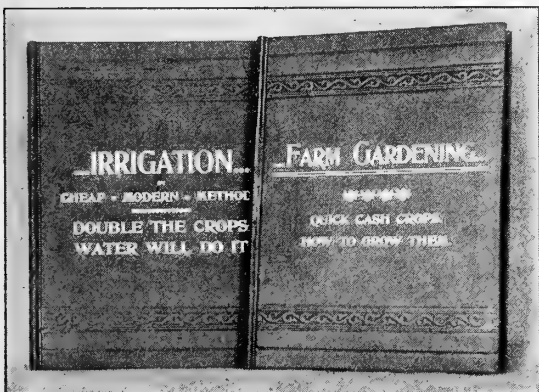 ...IRRIGATION...
BY
CHEAP - MODERN - METHOD
DOUBLE THE CROPS
WATER WILL DO IT
...FARM GARDENING...
QUICK CASH CROPS
HOW TO GROW THEM